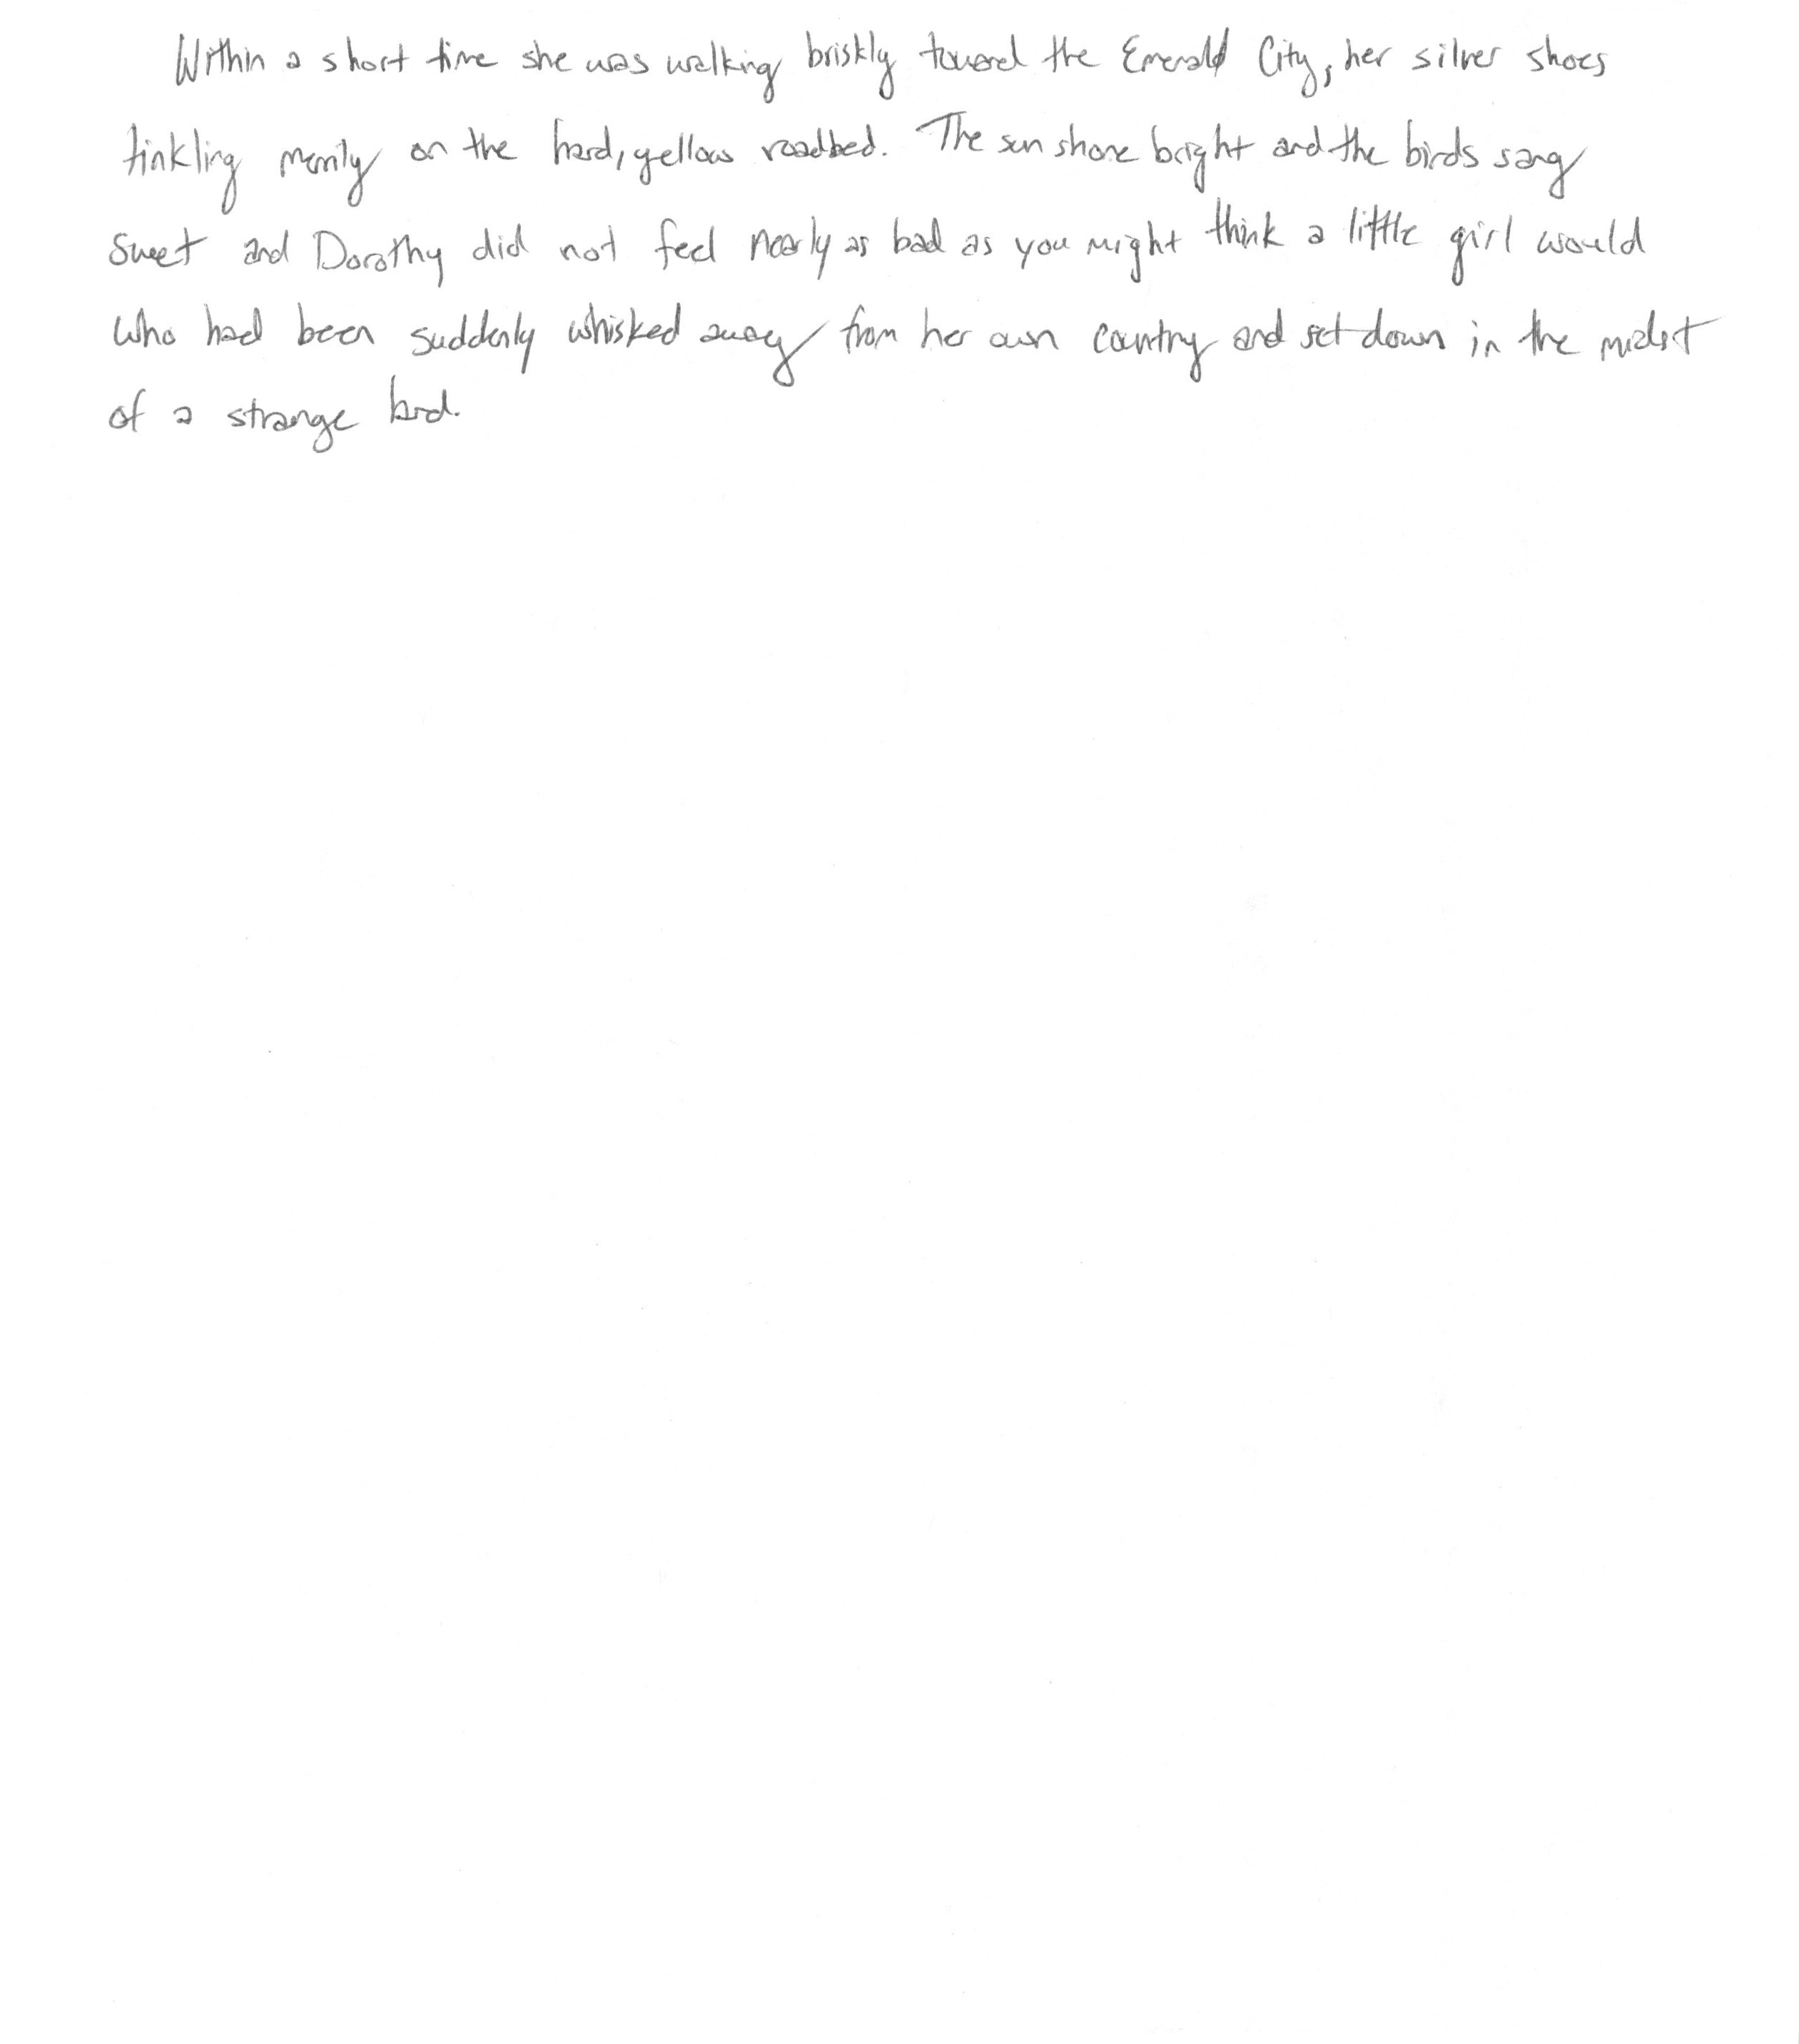 Within a short time she was walking briskly toward the Emerald City, her silver shoes
tinkling merrily on the hard, yellow roadbed. The sun shone bright and the birds sang
sweet and Dorothy did not feel nearly as bad as you might think a little girl would
who had been suddenly whisked away from her own country and set down in the midst
of a strange land.